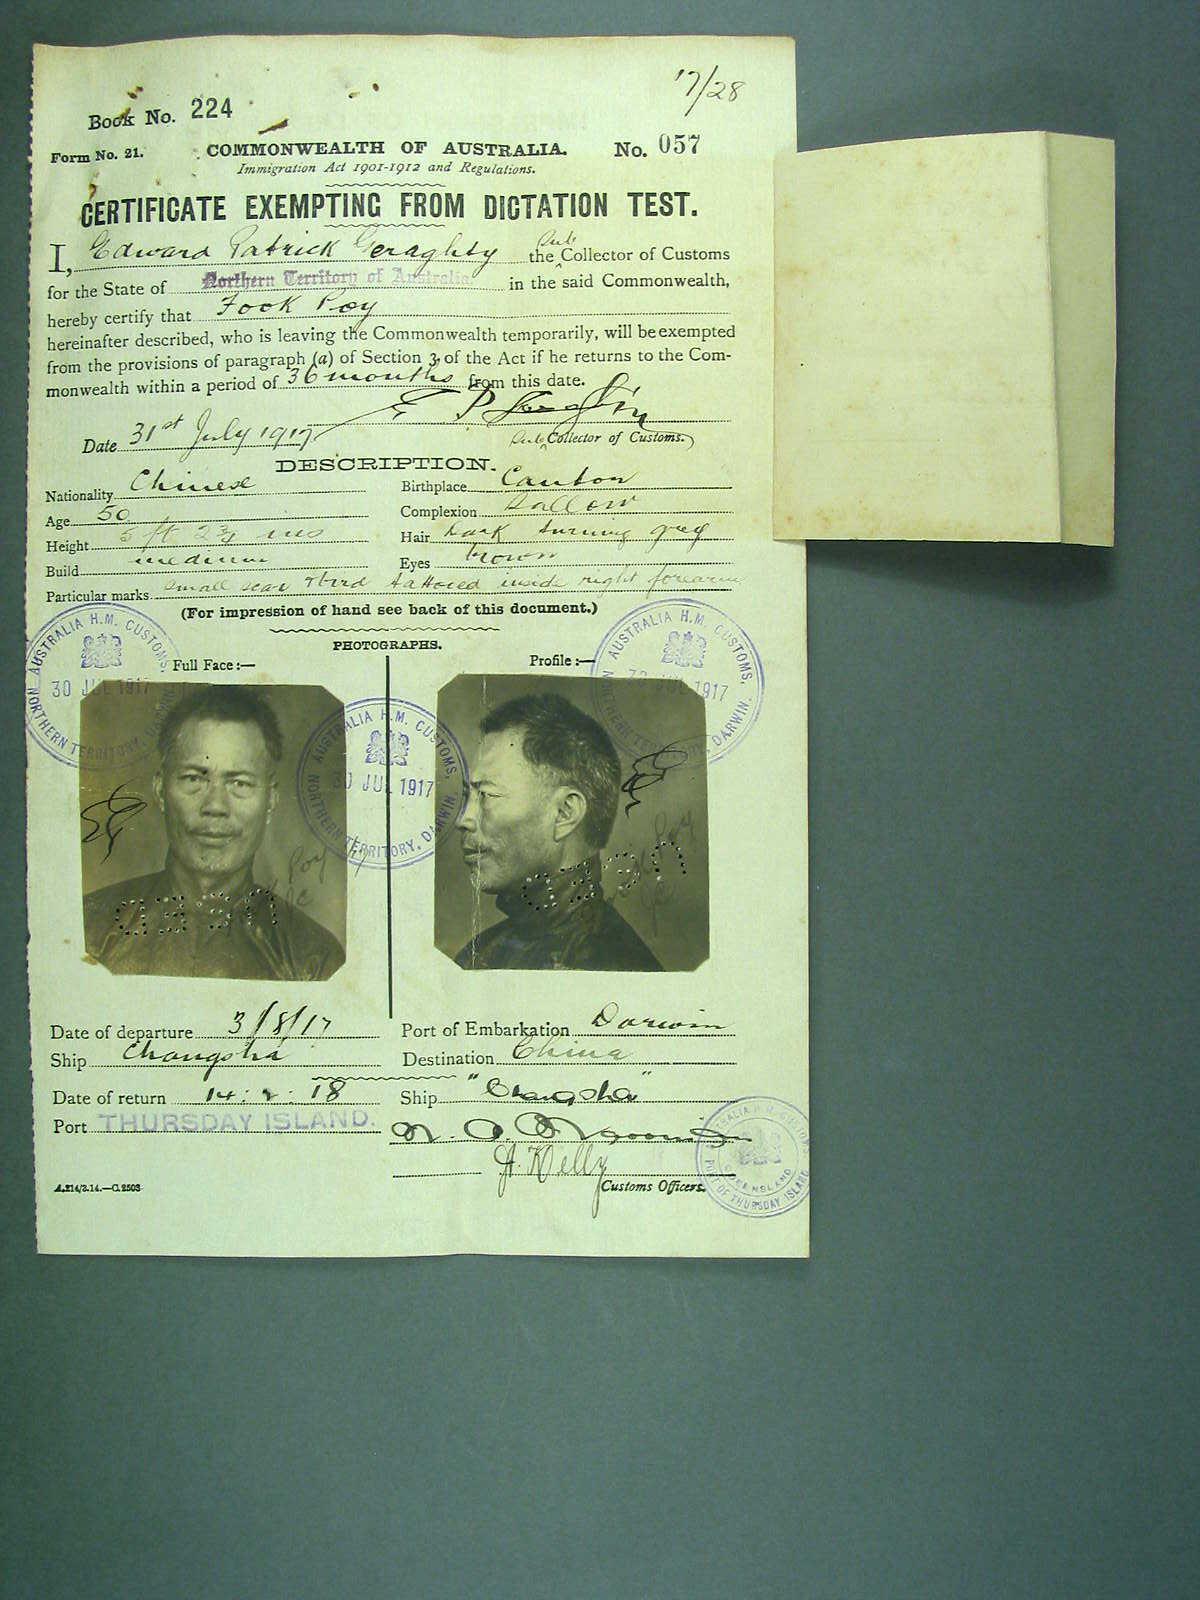 17/28
Book No. 224
Form No. 21. COMMONWEALTH OF AUSTRALIA. No. 057
Immigration Act 1901-1912 and Regulations.
CERTIFICATE EXEMPTING FROM DICTATION TEST.
I, Edward Patrick Geraghty the Sub Collector of Customs
for the State of Northern Territory of Australia. in the said Commonwealth,
hereby certify that Fook Poy
hereinafter described, who is leaving the Commonwealth temporarily, will be exempted
from the provisions of paragraph (a) of Section 3 of the Act if he returns to the Com-
monwealth within a period of 36 months from this date.
Date 31st July 1917 Sub Collector of Customs.
DESCRIPTION.
Nationality Chinese Birthplace Canton
Age 50 Complexion Sallow
Height 5 ft 2¾ ins Hair Dark turning grey
Build medium Eyes brown
Particular marks small scar & bird tattooed inside right forearm
(For impression of hand see back of this document.)
PHOTOGRAPHS.
Full Face:— Profile:—
AUSTRALIA H.M. CUSTOMS, NORTHERN TERRITORY, DARWIN.
30 JUL 1917
AUSTRALIA H.M. CUSTOMS, NORTHERN TERRITORY, DARWIN.
30 JUL 1917
AUSTRALIA H.M. CUSTOMS, NORTHERN TERRITORY, DARWIN.
JUL 1917
Poy
Poy
USED
USED
Date of departure 3/8/17 Port of Embarkation Darwin
Ship Changsha Destination China
Date of return 14:2:18 Ship "Changsha"
Port THURSDAY ISLAND.
Kelly
Customs Officers.
AUSTRALIA H.M. CUSTOMS PORT OF THURSDAY ISLAND
QUEENSLAND
A.214/3.14.—C.2503